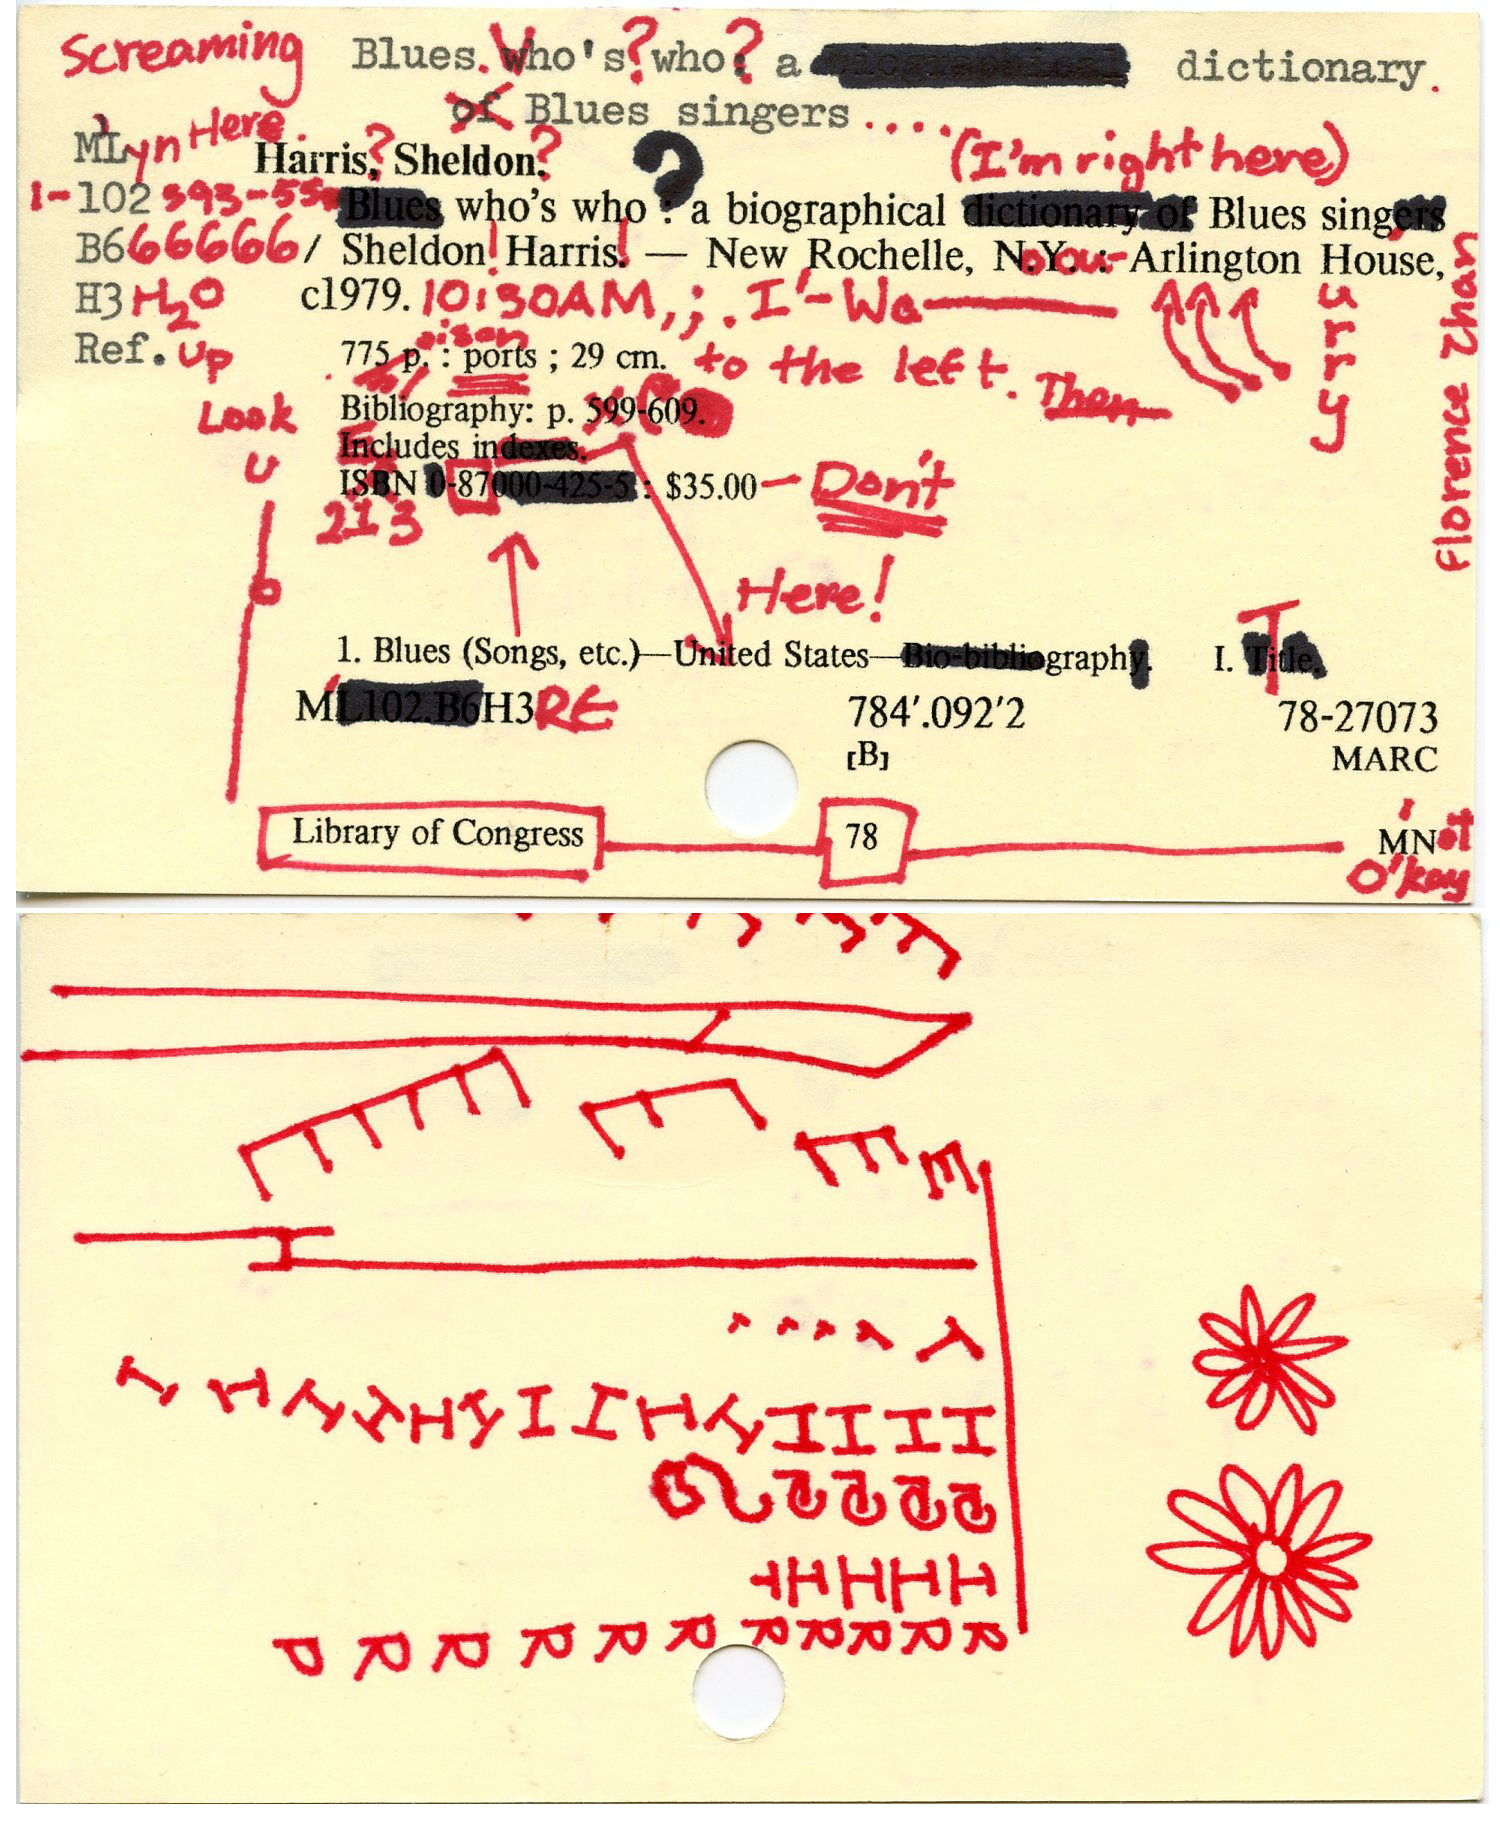 Screaming Blues. Who's? who? a dictionary.
of Blues singers....
MLyn Here. Harris? Sheldon? ? (I'm right here)
1-102 393-55 Blues who's who : a biographical dictionary of Blues singers
B666666/ Sheldon! Harris! — New Rochelle, N.Y. : Arlington House,
H3 H2O c1979. 10:30AM,;. I'-Wa
urry
Florence Zhan
Ref. Up 775 p. : ports ; 29 cm. to the left. Then
oison
Look Bibliography: p. 599-609.
U Includes indexes.
ISBN 0-87000-425-5 : $35.00 — Don't
213
Here!
1. Blues (Songs, etc.)—United States—Bio-bibliography. I. Title.
ML102.B6H3RE 784'.092'2 78-27073
[B] MARC
Library of Congress 78 MNot
O'kay